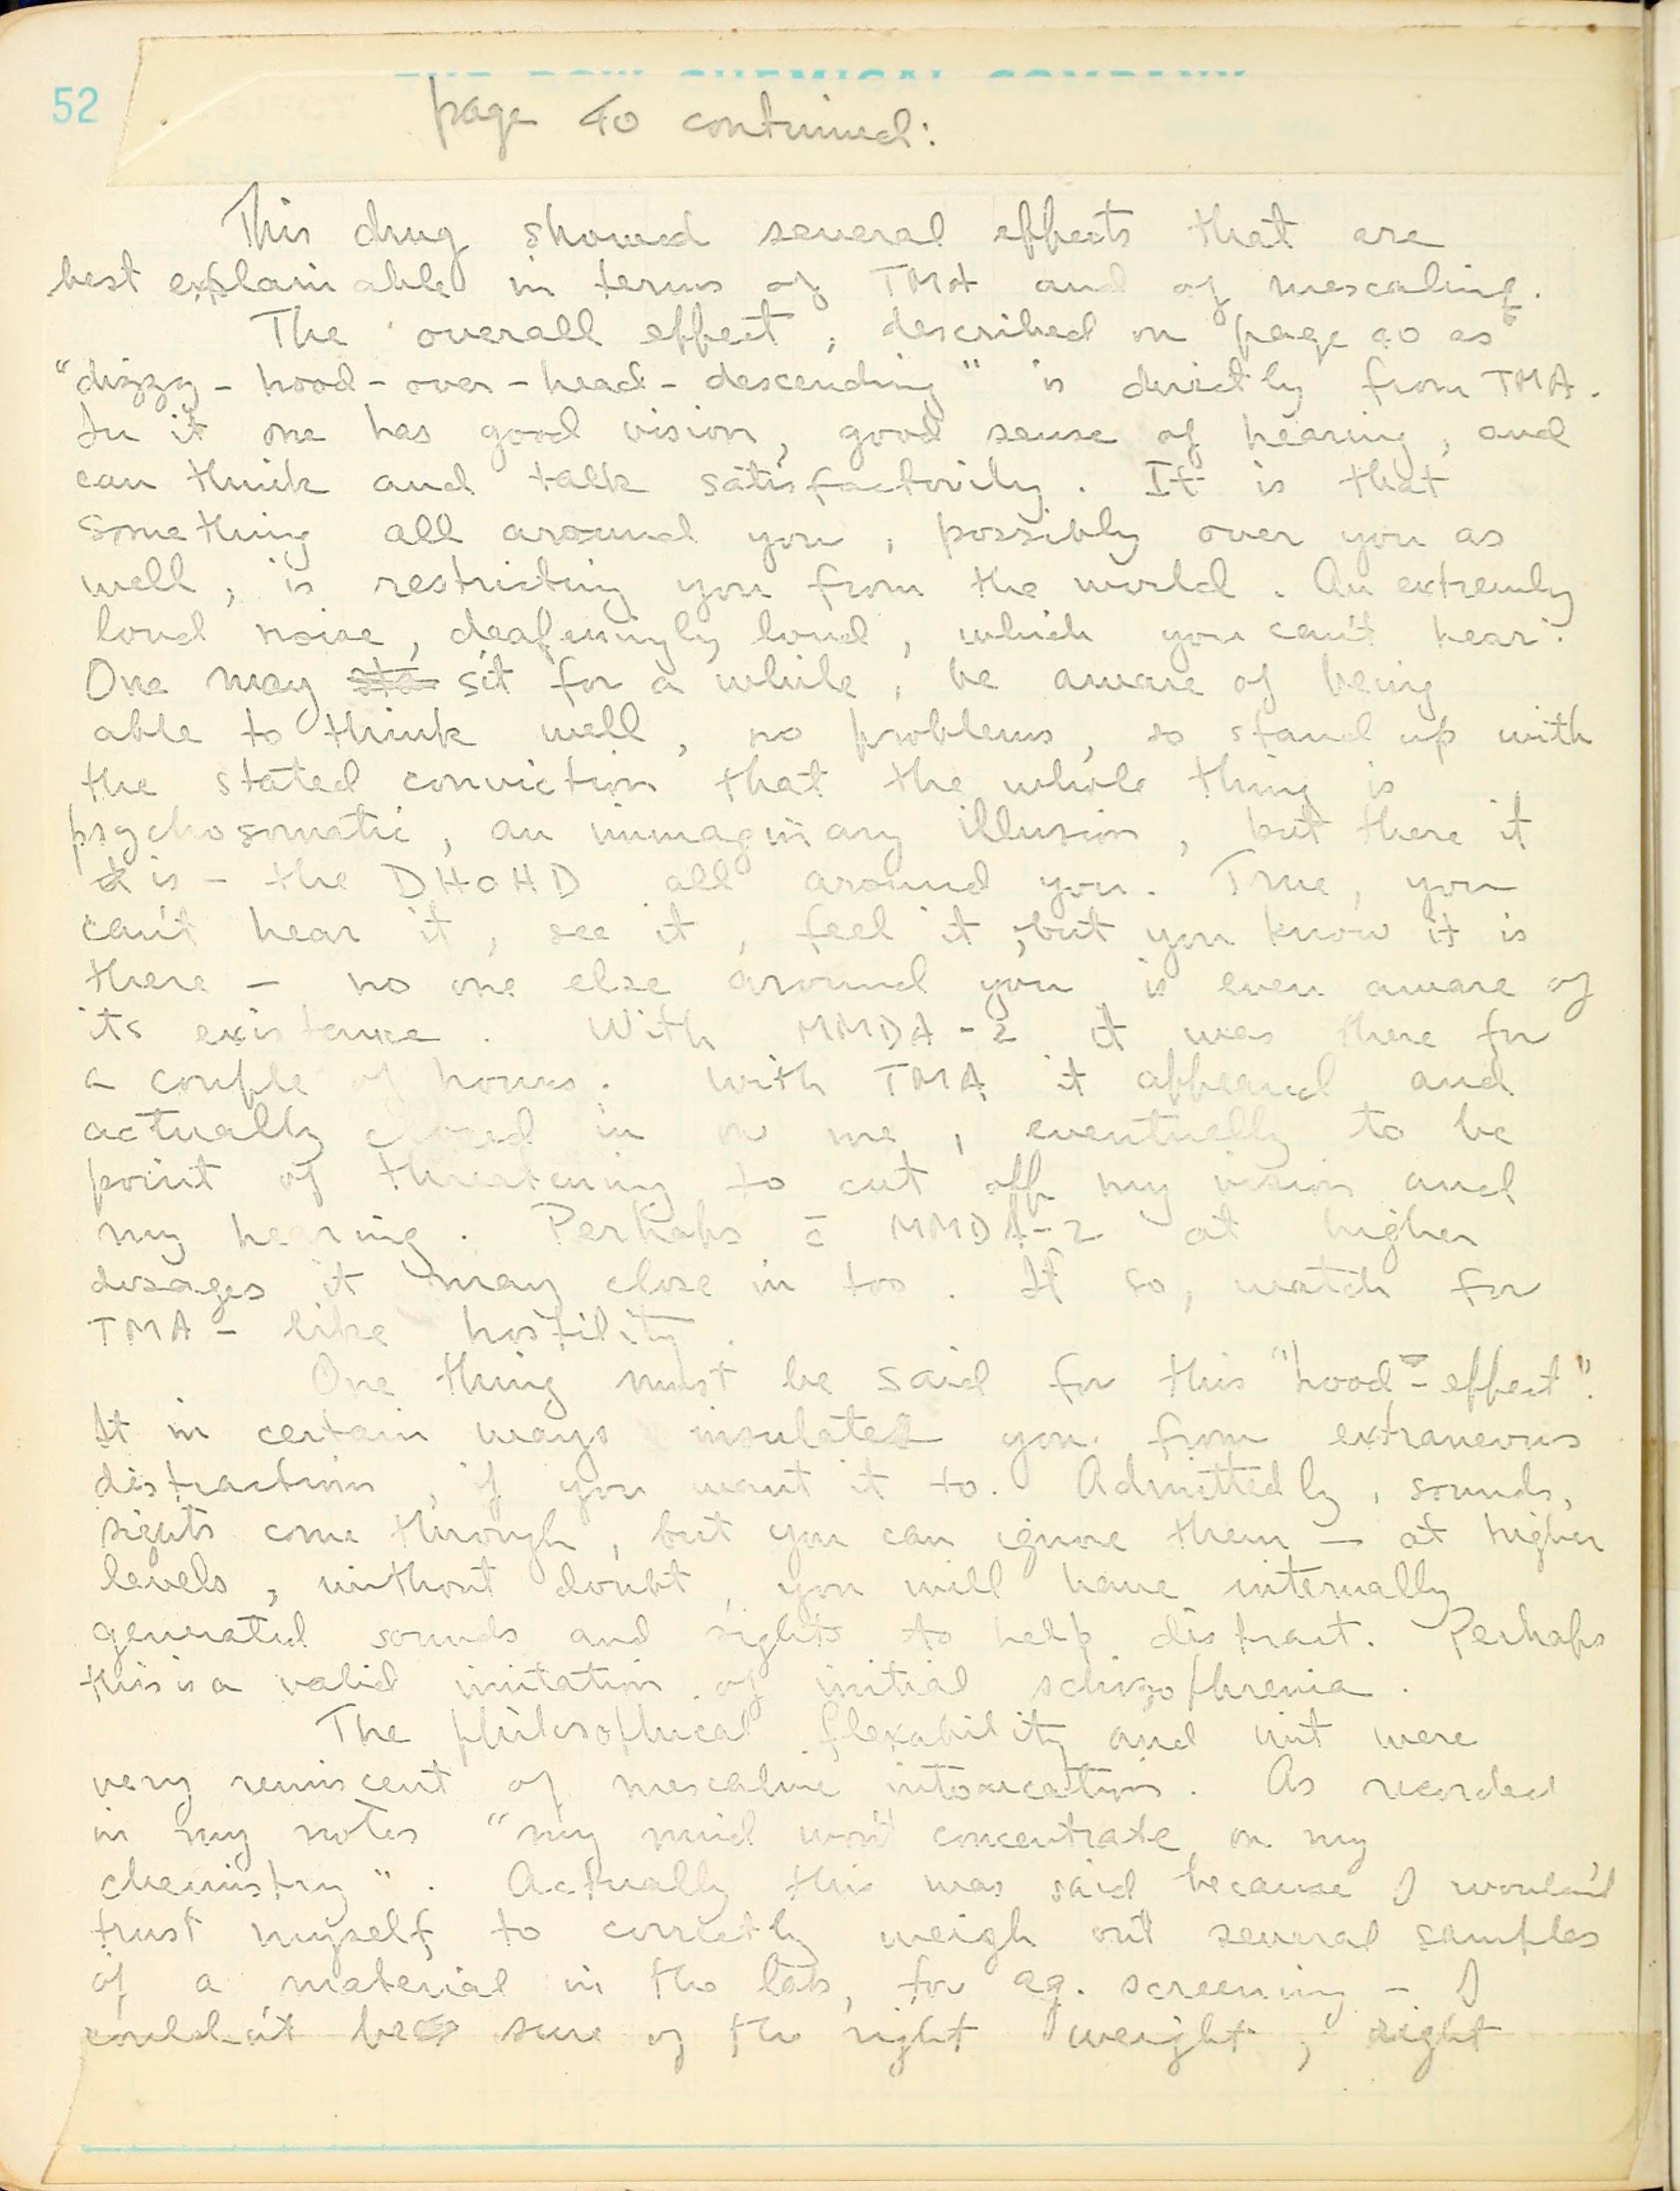 THE DOW CHEMICAL COMPANY
52
page 40 continued:
This drug showed several effects that are
best explainable in terms of TMA and of mescaline.
The overall effect, described on page 40 as
"dizzy-hood-over-head-descending" is directly from TMA.
In it one has good vision, good sense of hearing, and
can think and talk satisfactorily. It is that
something all around you, possibly over you as
well, is restricting you from the world. An extremly
loud noise, deafeningly loud, which you can't hear.
One may sit for a while, be aware of being
able to think well, no problems, so stand up with
the stated conviction that the whole thing is
psychosomatic, an immaginary illusion, but there it
is - the DHOHD all around you. True, you
can't hear it, see it, feel it, but you know it is
there - no one else around you is even aware of
its existence. With MMDA-2 it was there for
a couple of hours. With TMA it appeared and
actually closed in on me, eventually to be
point of threatening to cut off my vision and
my hearing. Perhaps c̄ MMDA-2 at higher
dosages it may close in too. If so, watch for
TMA-like hostility.
One thing must be said for this "hood-effect".
It in certain ways insulates you from extraneous
distractions, if you want it to. Admittedly, sounds,
sights come through, but you can ignore them - at higher
levels, without doubt, you will have internally
generated sounds and sights to help distract. Perhaps
this is a valid imitation of initial schizophrenia.
The philosophical flexability and wit were
very reminscent of mescaline intoxication. As recorded
in my notes "my mind won't concentrate on my
chemistry". Actually this was said because I wouldn't
trust myself to correctly weigh out several samples
of a material in the lab, for ag. screening - I
couldn't be sure of the right weight, right